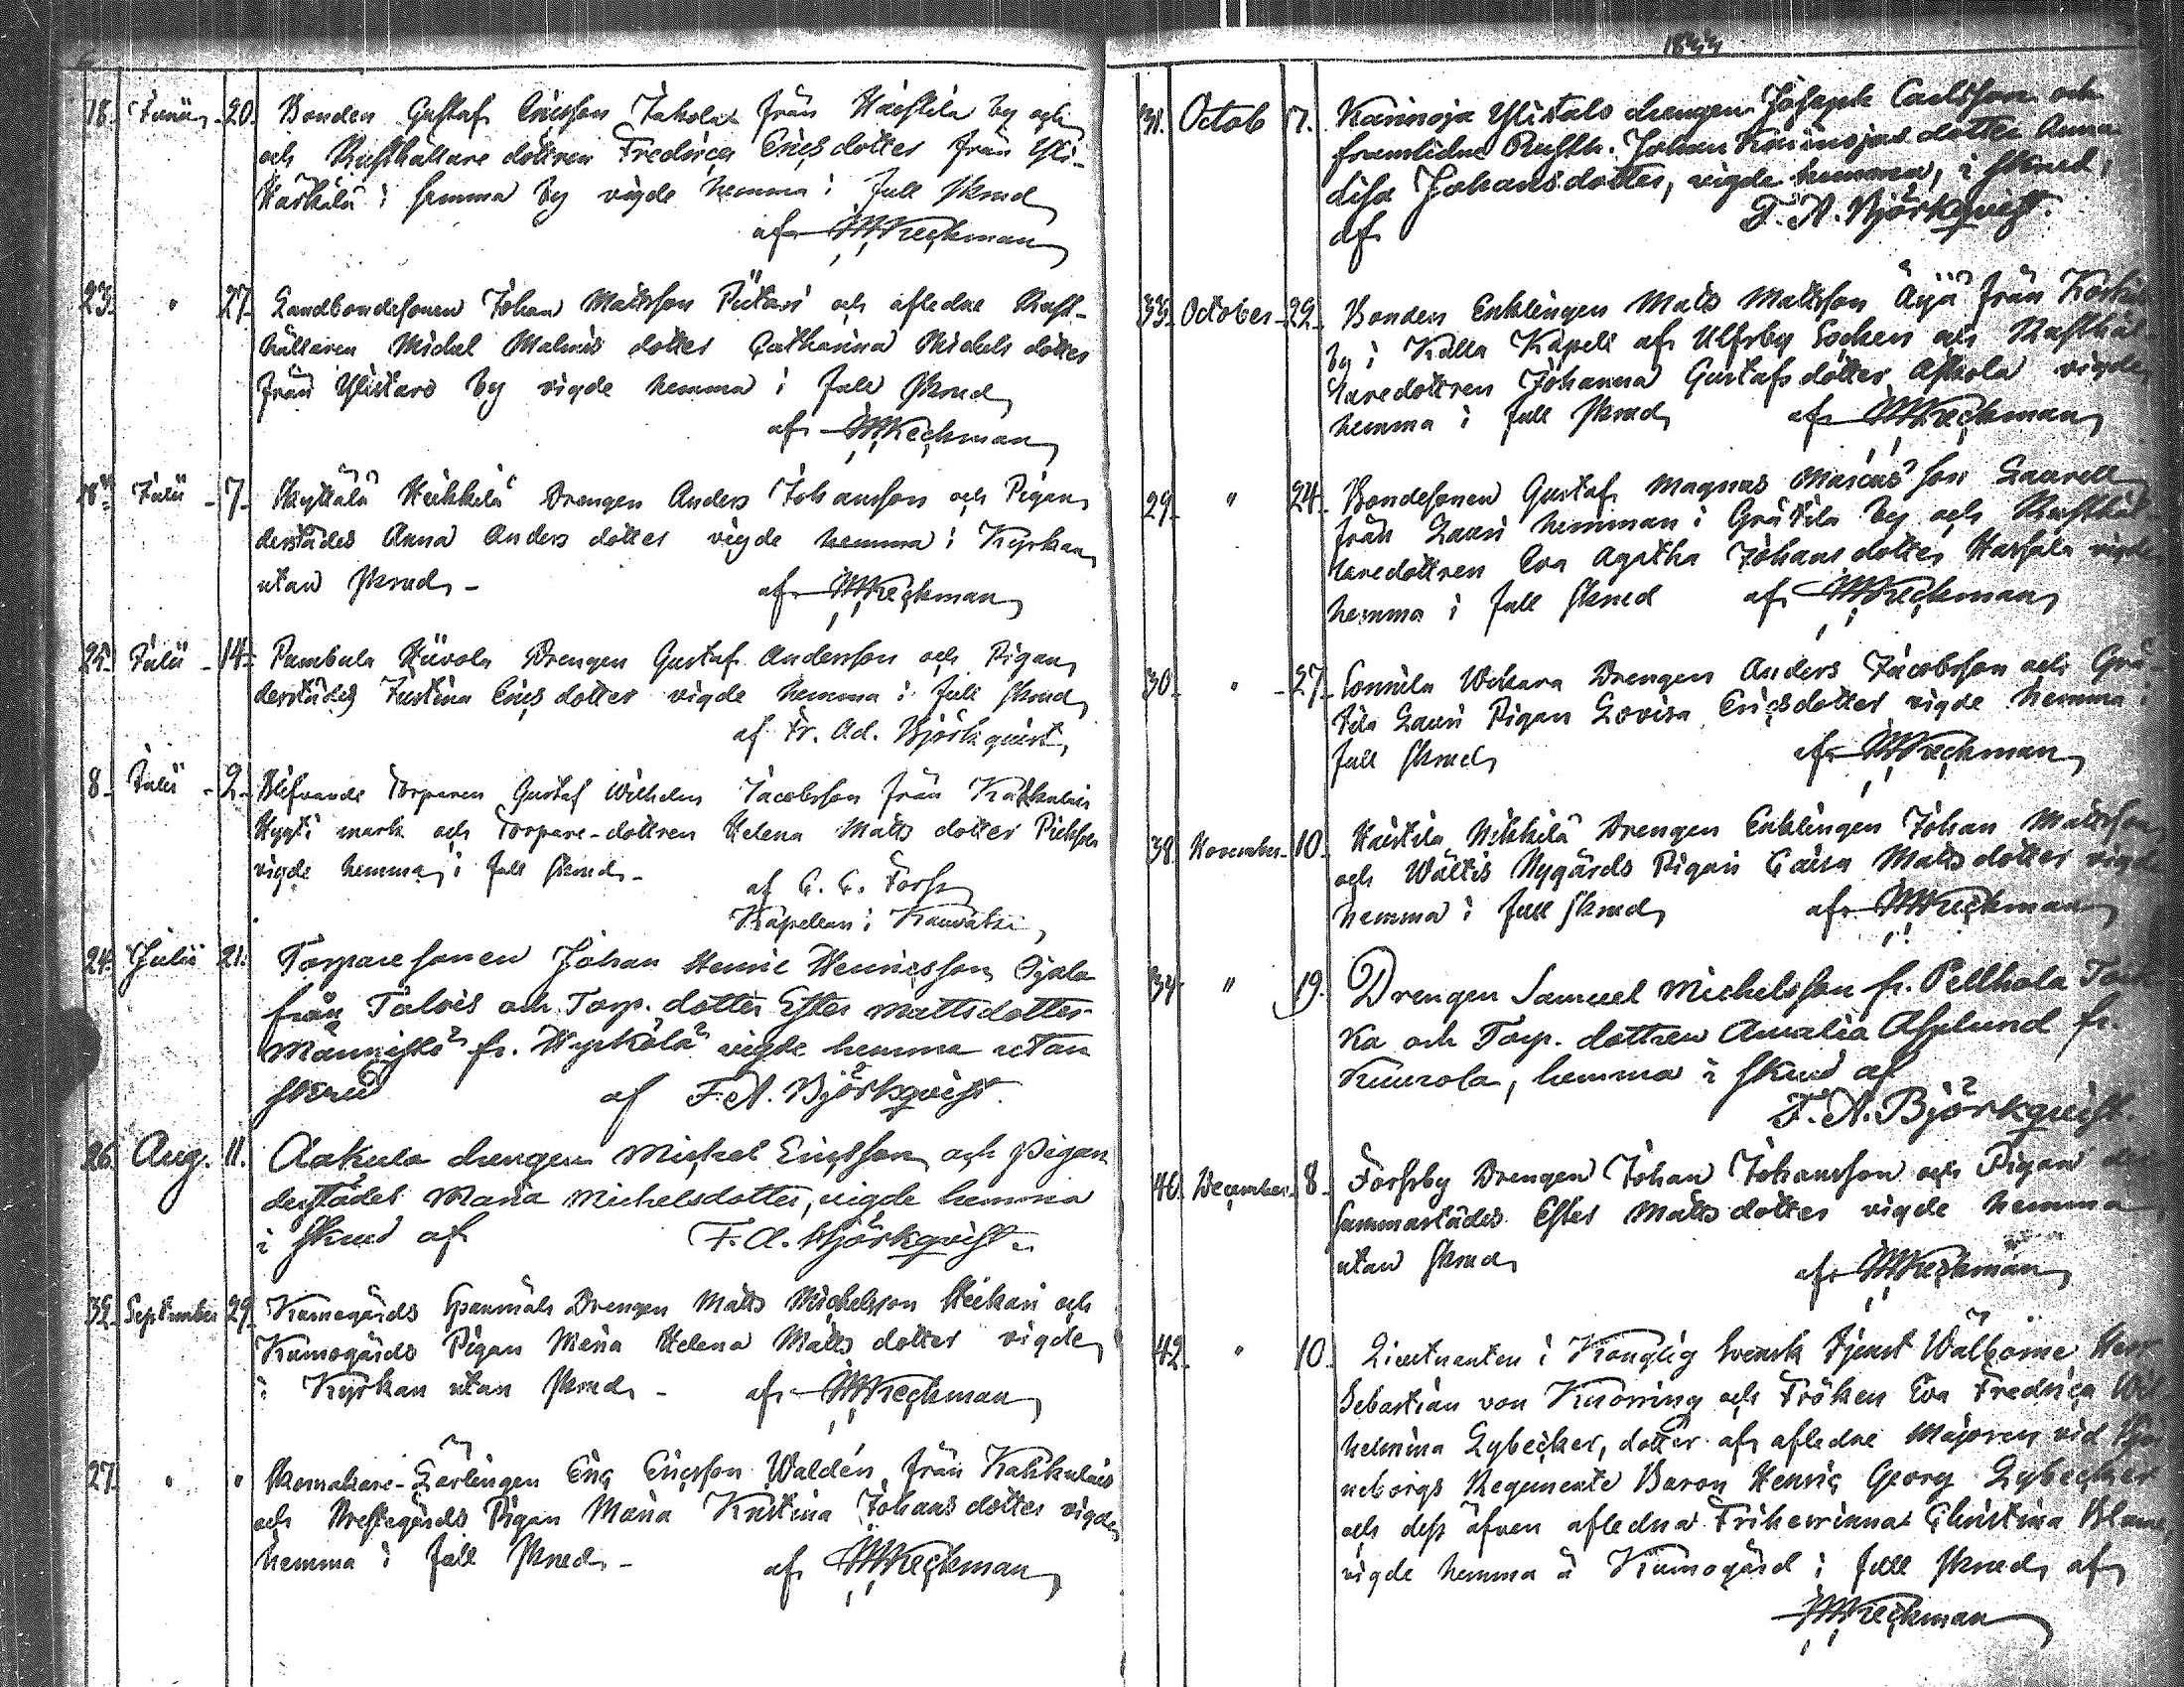 18. Junii 20. Bonden Gustaf Ericsson Jakola från Haistila by och
och Rusthållare dottren Fredrica Ericsdotter från Yli-
Härkälä i samma by vigde hemma i full skrud
af Keckman
23. " 27. Landbondesonen Johan Mattsson Pietari och afledne Rust-
hållaren Michel Malmis dotter Catharina Michels dotter
från Ylistaro by vigde hemma i full skrud
af Keckman
Julii 7. Heikkilä Drengen Anders Johansson och Pigan
derstädes Anna Anders dotter vigde hemma i Kyrkan
utan skrud - af Keckman
25. Julii 14. Pumbula Hiivola Drengen Gustaf Andersson och Pigan
derstädes Justina Erics dotter vigde hemma i full skrud
af Fr. Ad. Björkquist
8. Julii 2. Blifvande Torparen Gustaf Wilhelm Jacobsson från Kakkulais
mark och Torpare-dottren Helena Matts dotter
vigde hemma i full skrud -
af C. C. Forss
Kapellan i Kauvatsa
24. Julii 21. Torparesonen Johan Henric Henricsson Ojala
från Talois och Torp. dotter Ester Mattsdotter
Männistö fr. Hyrkölä vigde hemma utan
skrud af F. A. Björkqvist.
26. Aug. 11. Aakula drengen Michel Ericsson och Pigan
derstädes Maria Michelsdotter, vigde hemma
i skrud af F. A. Björkqvist.
32. September 29. Kumogårds Drengen Matts Michelsson Heikari och
Kumogårds Pigan Maria Helena Matts dotter vigde
i Kyrkan utan skrud - af Keckman
27. " " Skomakare-Lärlingen Eric Ericsson Waldén från Kakkulais
och Prestegårds Pigan Maria Kristina Johans dotter vigde
hemma i full skrud - af Keckman
1844
31. Octob 17. Karinoja Ylitalo drengen Joseph Carlsson och
framlidne Rusth. Johan Karinojas dotter Anna
Lisa Johansdotter, vigde hemma, i skrud,
af F. A. Björkqvist.
33. October 22. Bonden Enklingen Matts Mattsson Äijä från
by i Kulla Kapell af Ulfsby Socken och Rusthål-
laredottren Johanna Gustafs dotter Askola vigde
hemma i full skrud af Keckman
29. " 24. Bondesonen Gustaf Magnus Marcus son Laurell
från Lauri hemman i Gråtila by och Rusthål-
laredottren Eva Agatha Johans dotter Harjula vigde
hemma i full skrud af Keckman
30. " 27. Sonnila Uotara Drengen Anders Jacobsson och Grå-
tila Lauri Pigan Lovisa Ericsdotter vigde hemma i
full skrud af Keckman
38. November 10. Haistila Nikkilä Drengen Enklingen Johan Mattsson
och Wältis Nygårds Pigan Caisa Matts dotter vigde
hemma i full skrud af Keckman
34. " 19. Drengen Samuel Michelsson fr. Pellhola
och Torp. dottren Amalia Asplund fr.
Kuurola, hemma i skrud af
F. A. Björkqvist.
40. December 8. Forssby Drengen Johan Johansson och Pigan
sammastädes Ester Matts dotter vigde hemma
utan skrud af Keckman
42. " 10. Lieutnanten i Konglig Svensk Tjenst Wälborne Herr
Sebastian von Knorring och Fröken Eva Fredrica Wil
helmina Lybecker, dotter af afledne Majoren vid Björ
neborgs Regemente Baron Henric Georg Lybecker
och dess äfven afledna Friherrinna Christina
vigde hemma å Kumogård i full skrud af
Keckman